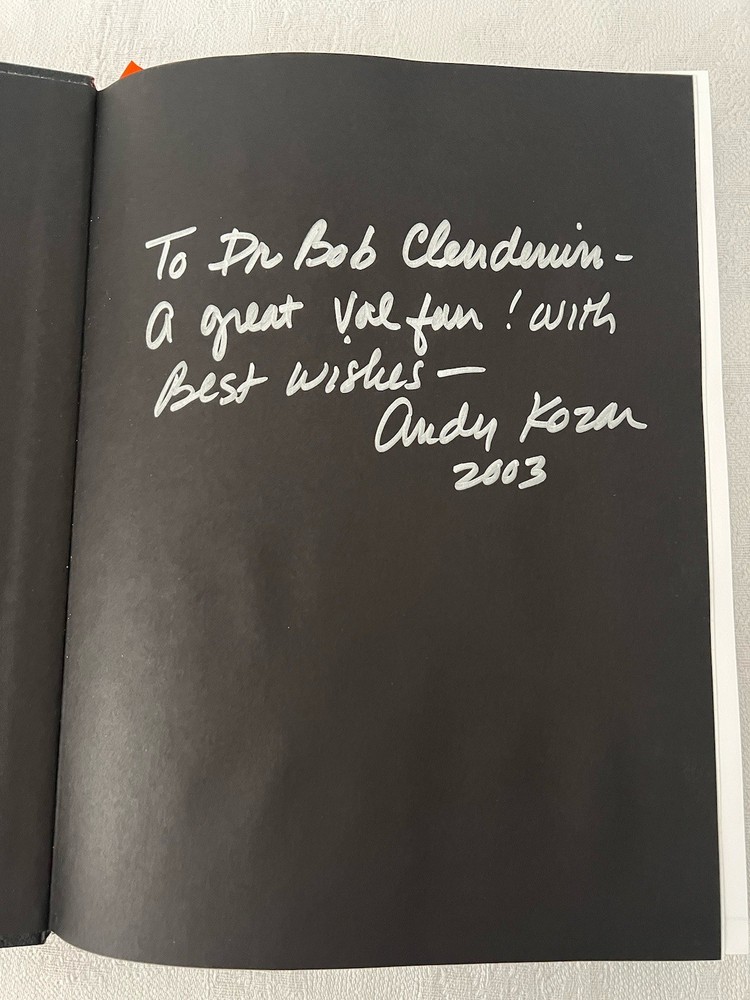 To Dr Bob Clendenin -
A great Vol fan! with
Best Wishes —
Andy Kozar
2003